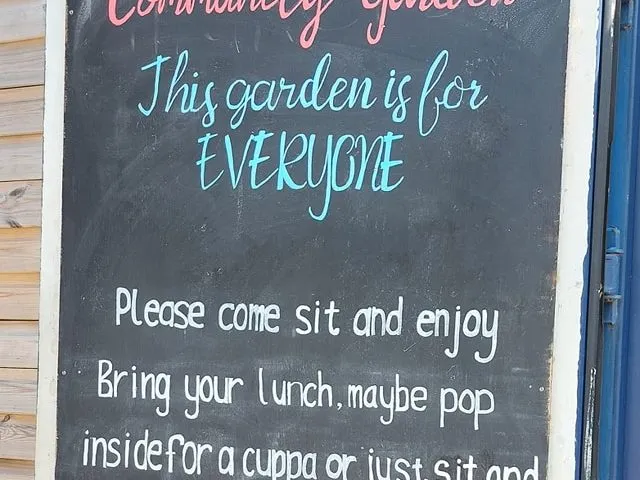 Community Garden
This garden is for
EVERYONE
Please come sit and enjoy
Bring your lunch, maybe pop
inside for a cuppa or just sit and